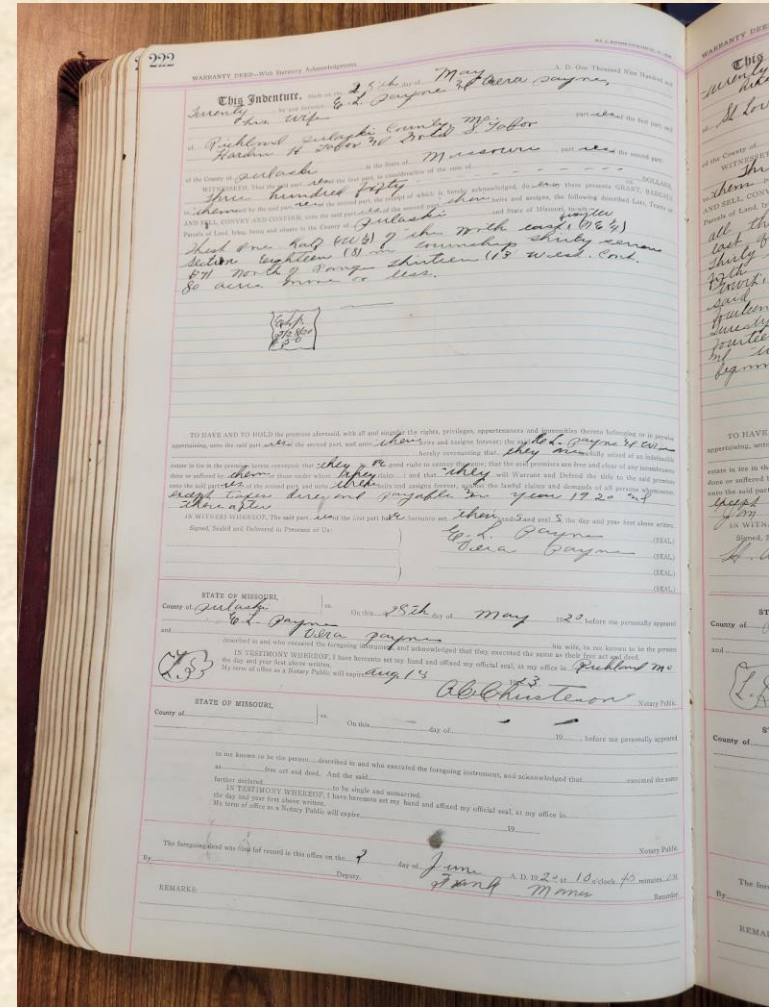 222
WARRANTY DEED—With Statutory Acknowledgments.
This Indenture, Made on the 28th day of May A. D. One Thousand Nine Hundred and
Twenty by and between E. L. Payne & Vera Payne,
his wife
of Richland Pulaski County, Mo. part ies of the first part, and
Hardin H Tabor
of the County of Pulaski in the State of Missouri part ies of the second part.
WITNESSETH, That the said part ies of the first part, in consideration of the sum of
Three hundred fifty DOLLARS,
to them paid by the said part ies of the second part, the receipt of which is hereby acknowledged, do these presents GRANT, BARGAIN
AND SELL, CONVEY AND CONFIRM, unto the said part ies of the second part, their heirs and assigns, the following described Lots, Tracts or
Parcels of Land, lying, being and situate in the County of Pulaski and State of Missouri, to-wit:
quarter
West One half (W½) of the North east (NE¼)
Section Eighteen (18) in township thirty seven
(37) North of Range thirteen (13) West. Cont.
80 acres more or less.
TO HAVE AND TO HOLD the premises aforesaid, with all and singular the rights, privileges, appurtenances and immunities thereto belonging or in anywise
appertaining, unto the said part ies of the second part, and unto their heirs and assigns forever; the said E. L. Payne
hereby covenanting that they are lawfully seized of an indefeasible
estate in fee in the premises herein conveyed; that they have good right to convey the same; that the said premises are free and clear of any incumbrance
done or suffered by them or those under whom they claim; and that they will Warrant and Defend the title to the said premises
unto the said part ies of the second part and unto their heirs and assigns forever, against the lawful claims and demands of all persons whomsoever,
except taxes due and payable in year 1920 and
thereafter
IN WITNESS WHEREOF, The said part ies of the first part have hereunto set their hand s and seal s the day and year first above written.
Signed, Sealed and Delivered in Presence of Us:
E. L. Payne (SEAL.)
Vera Payne (SEAL.)
(SEAL.)
(SEAL.)
STATE OF MISSOURI,
County of Pulaski ss. On this 28th day of May 1920 before me personally appeared
E. L. Payne
and Vera Payne his wife, to me known to be the person
described in and who executed the foregoing instrument, and acknowledged that they executed the same as their free act and deed.
IN TESTIMONY WHEREOF, I have hereunto set my hand and affixed my official seal, at my office in Richland Mo
the day and year first above written.
My term of office as a Notary Public will expire Aug 13 1923
L.S.
A C Christeson Notary Public.
STATE OF MISSOURI,
County of ss. On this day of 19 before me personally appeared
to me known to be the person described in and who executed the foregoing instrument, and acknowledged that executed the same
as free act and deed. And the said
further declared to be single and unmarried.
IN TESTIMONY WHEREOF, I have hereunto set my hand and affixed my official seal, at my office in
the day and year first above written.
My term of office as a Notary Public will expire 19
Notary Public.
The foregoing deed was filed for record in this office on the 2 day of June A. D. 1920 at 10 o'clock 40 minutes M
By Deputy. Frank Manes Recorder.
REMARKS: